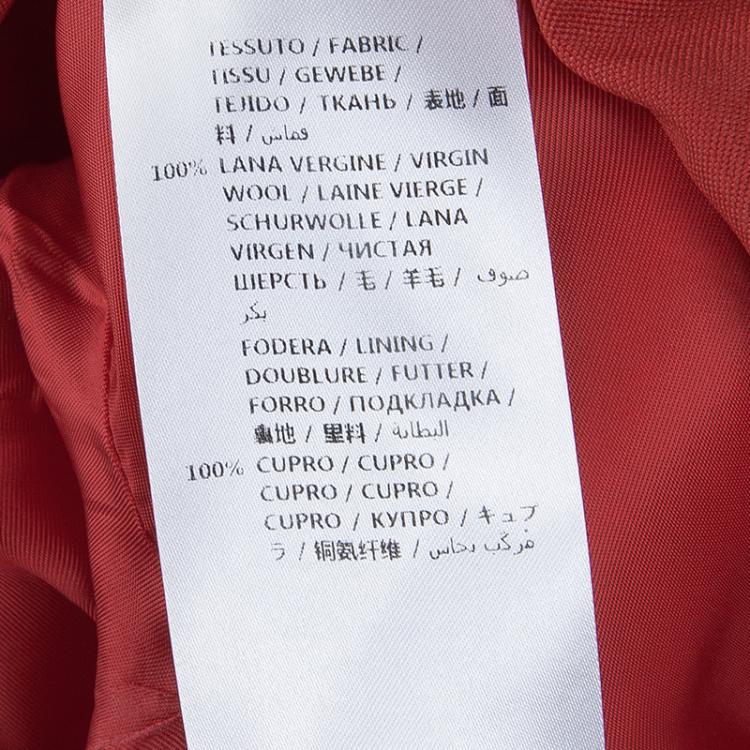 TESSUTO / FABRIC /
TISSU / GEWEBE /
TEJIDO / ТКАНЬ / 表地 / 面
料 / قماش
100% LANA VERGINE / VIRGIN
WOOL / LAINE VIERGE /
SCHURWOLLE / LANA
VIRGEN / ЧИСТАЯ
ШЕРСТЬ / 毛 / 羊毛 / صوف
بكر
FODERA / LINING /
DOUBLURE / FUTTER /
FORRO / ПОДКЛАДКА /
裏地 / 里料 / البطانة
100% CUPRO / CUPRO /
CUPRO / CUPRO /
CUPRO / КУПРО / キュプ
ラ / 铜氨纤维 / مركب بحاس